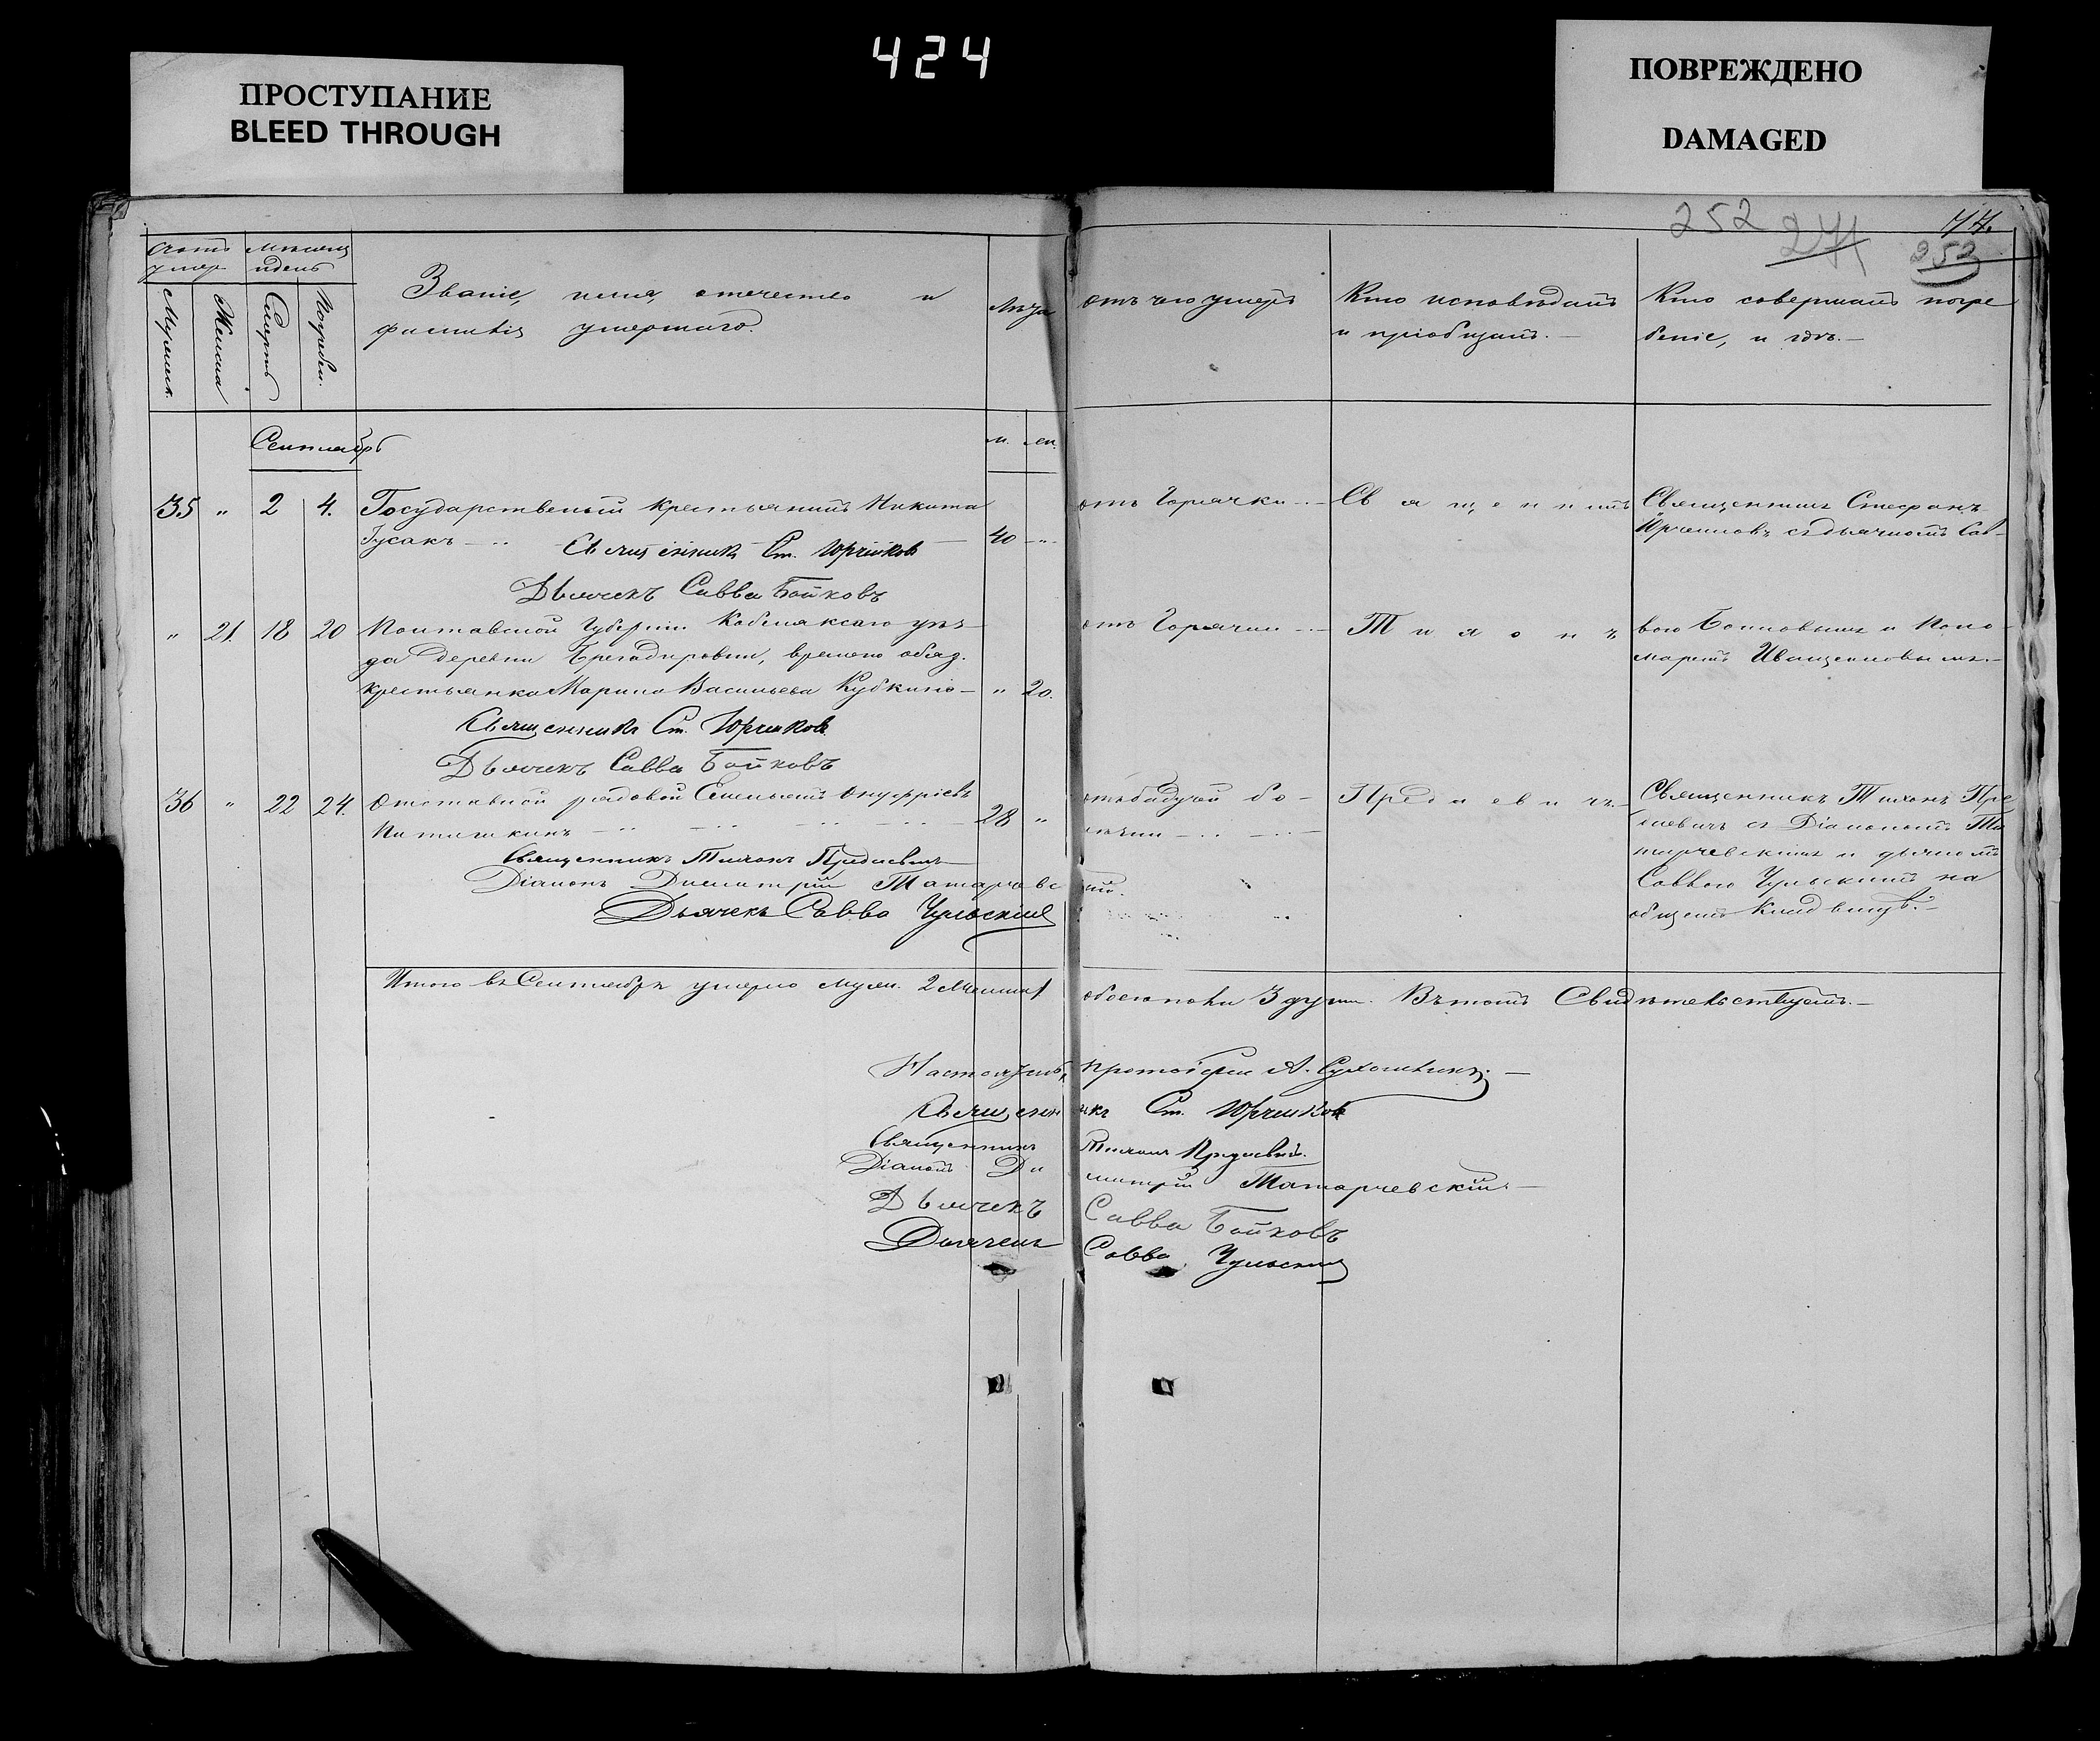 424
ПРОСТУПАНИЕ
BLEED THROUGH
ПОВРЕЖДЕНО
DAMAGED
252 271 74.
252
Счетъ умер.
Мѣсяцъ и день
Мужеск.
Женска
Смерть
Погребен.
Званіе, имя, отечество и
фамилія умершаго.
Лѣта
отъ чего умеръ
Кто исповѣдалъ
и пріобщалъ. —
Кто совершалъ погре
беніе, и гдѣ. —
Сентябрь
м. жн.
35 „ 2 4. Государственый крестьянинъ Никита
Гусакъ — 40 „
Священникъ Ст. Юрчиковъ
Дьячекъ Савва Бойковъ
отъ Горячки — Священникъ
Священникъ Стефанъ
Юрчиковъ съ дьячкомъ Сав-
„ 21. 18 20 Полтавской Губерніи Кобелякскаго уѣз-
да деревни Бригадировки, времено обяз.
крестьянка Марина Васильева — „ 20.
Священникъ Ст. Юрчиковъ
Дьячекъ Савва Бойковъ
отъ Горячки — Тихонъ
вою Бойковымъ и Поно-
маремъ Иващенковымъ. —
36 „ 22 24. Отставной рядовой Емельянъ Онуфріевъ
28 „
Священникъ Тихонъ
Діаконъ Димитрій Татарчевс
кій.
Дьячекъ Савва Чульскій
отъ падучей бо-
лѣзни —
Священникъ Тихонъ Пре
съ Діакономъ Та
тарчевскимъ и дьячкомъ
Саввою Чульскимъ на
общемъ кладбищѣ. —
Итого въ Сентябрѣ умерло муж. 2 женска 1 обоего пола 3 души. Въ томъ Свидѣтельствуемъ. —
Настоятель, протоіерей А.
Священникъ Ст. Юрчиковъ
Священникъ Тихонъ
Діаконъ Димитрій Татарчевскій. —
Дьячекъ Савва Бойковъ
Дьячекъ Савва Чульскій